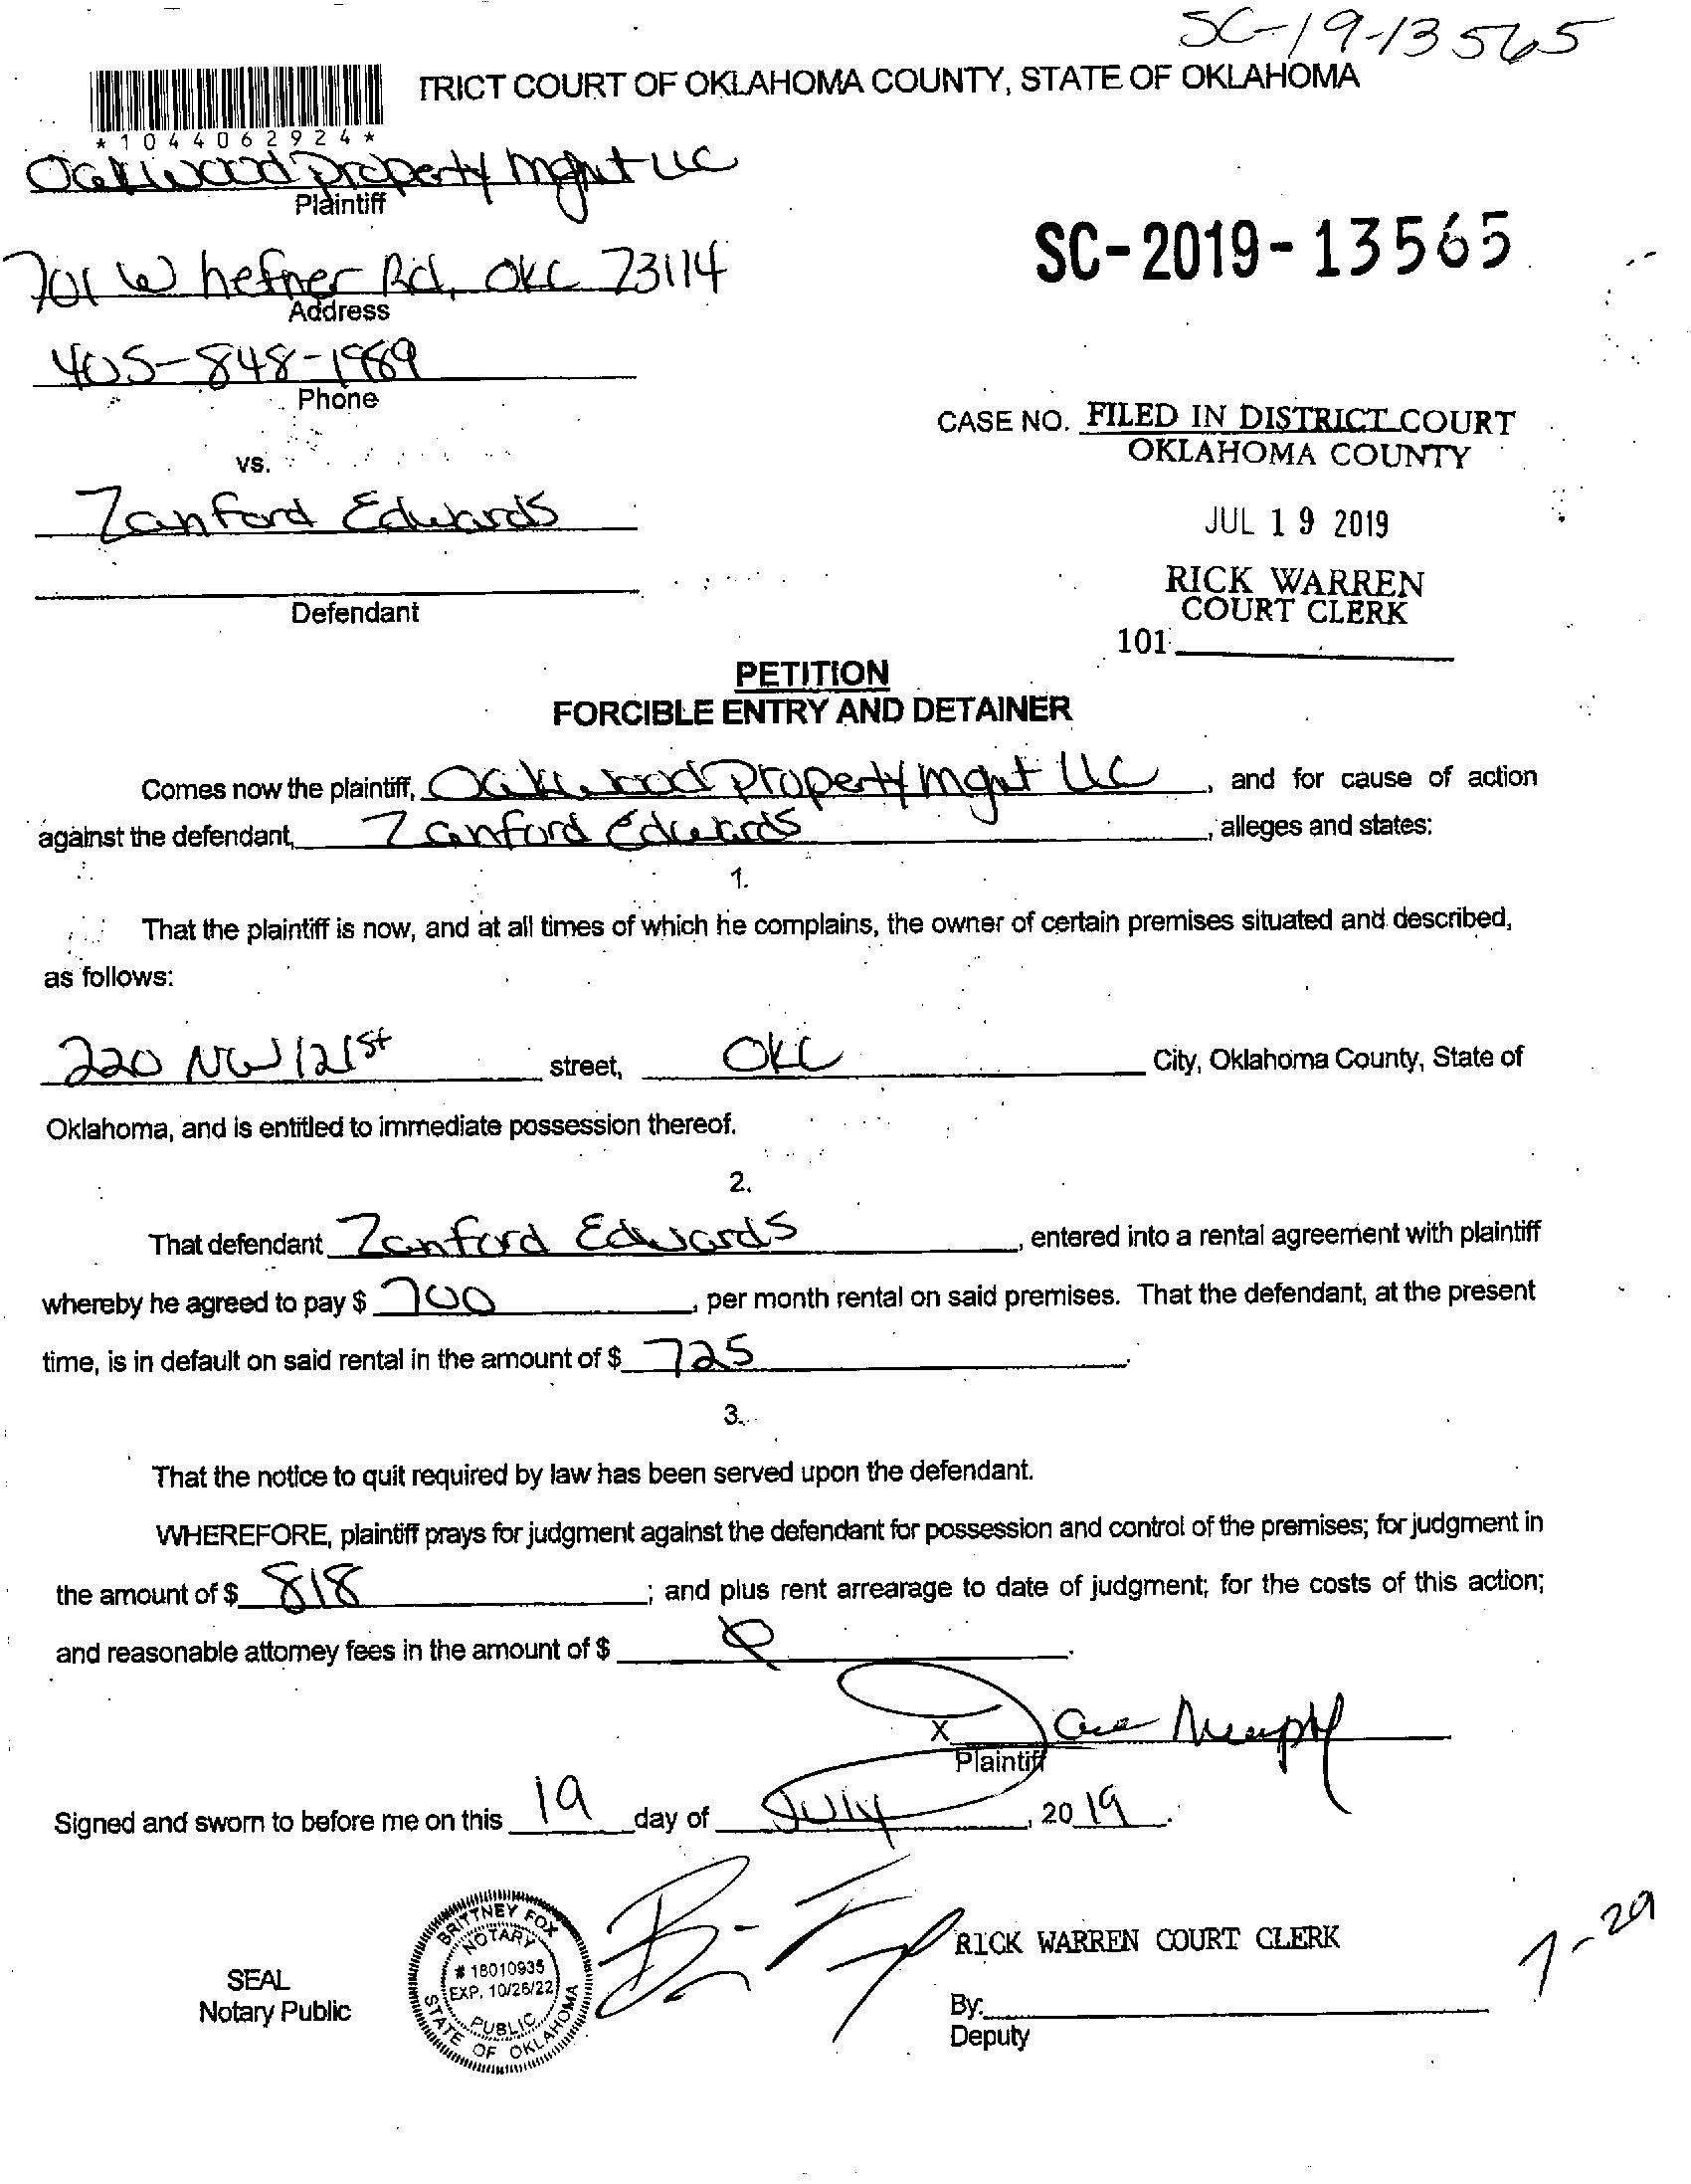 SC-19-13565
TRICT COURT OF OKLAHOMA COUNTY, STATE OF OKLAHOMA
*1044062924*
Oakwood Property Mgmt LLC
Plaintiff
SC-2019-13565
701 W hefner Rd, OKC 73114
Address
405-848-1989
Phone
CASE NO. FILED IN DISTRICT COURT
OKLAHOMA COUNTY
vs.
Zanford Edwards
JUL 19 2019
RICK WARREN
COURT CLERK
Defendant
101
PETITION
FORCIBLE ENTRY AND DETAINER
Comes now the plaintiff, Oakwood Property Mgmt LLC, and for cause of action
against the defendant, Zanford Edwards, alleges and states:
1.
That the plaintiff is now, and at all times of which he complains, the owner of certain premises situated and described,
as follows:
220 NW 121st street, OKC City, Oklahoma County, State of
Oklahoma, and is entitled to immediate possession thereof.
2.
That defendant Zanford Edwards, entered into a rental agreement with plaintiff
whereby he agreed to pay $ 700, per month rental on said premises. That the defendant, at the present
time, is in default on said rental in the amount of $ 725.
3.
That the notice to quit required by law has been served upon the defendant.
WHEREFORE, plaintiff prays for judgment against the defendant for possession and control of the premises; for judgment in
the amount of $ 818; and plus rent arrearage to date of judgment; for the costs of this action;
and reasonable attorney fees in the amount of $ 0.
X
Plaintiff
Signed and sworn to before me on this 19 day of July, 2019.
BRITTNEY FOX
NOTARY
# 18010935
EXP. 10/26/22
PUBLIC
STATE OF OKLAHOMA
RICK WARREN COURT CLERK
7-29
SEAL
Notary Public
By:
Deputy